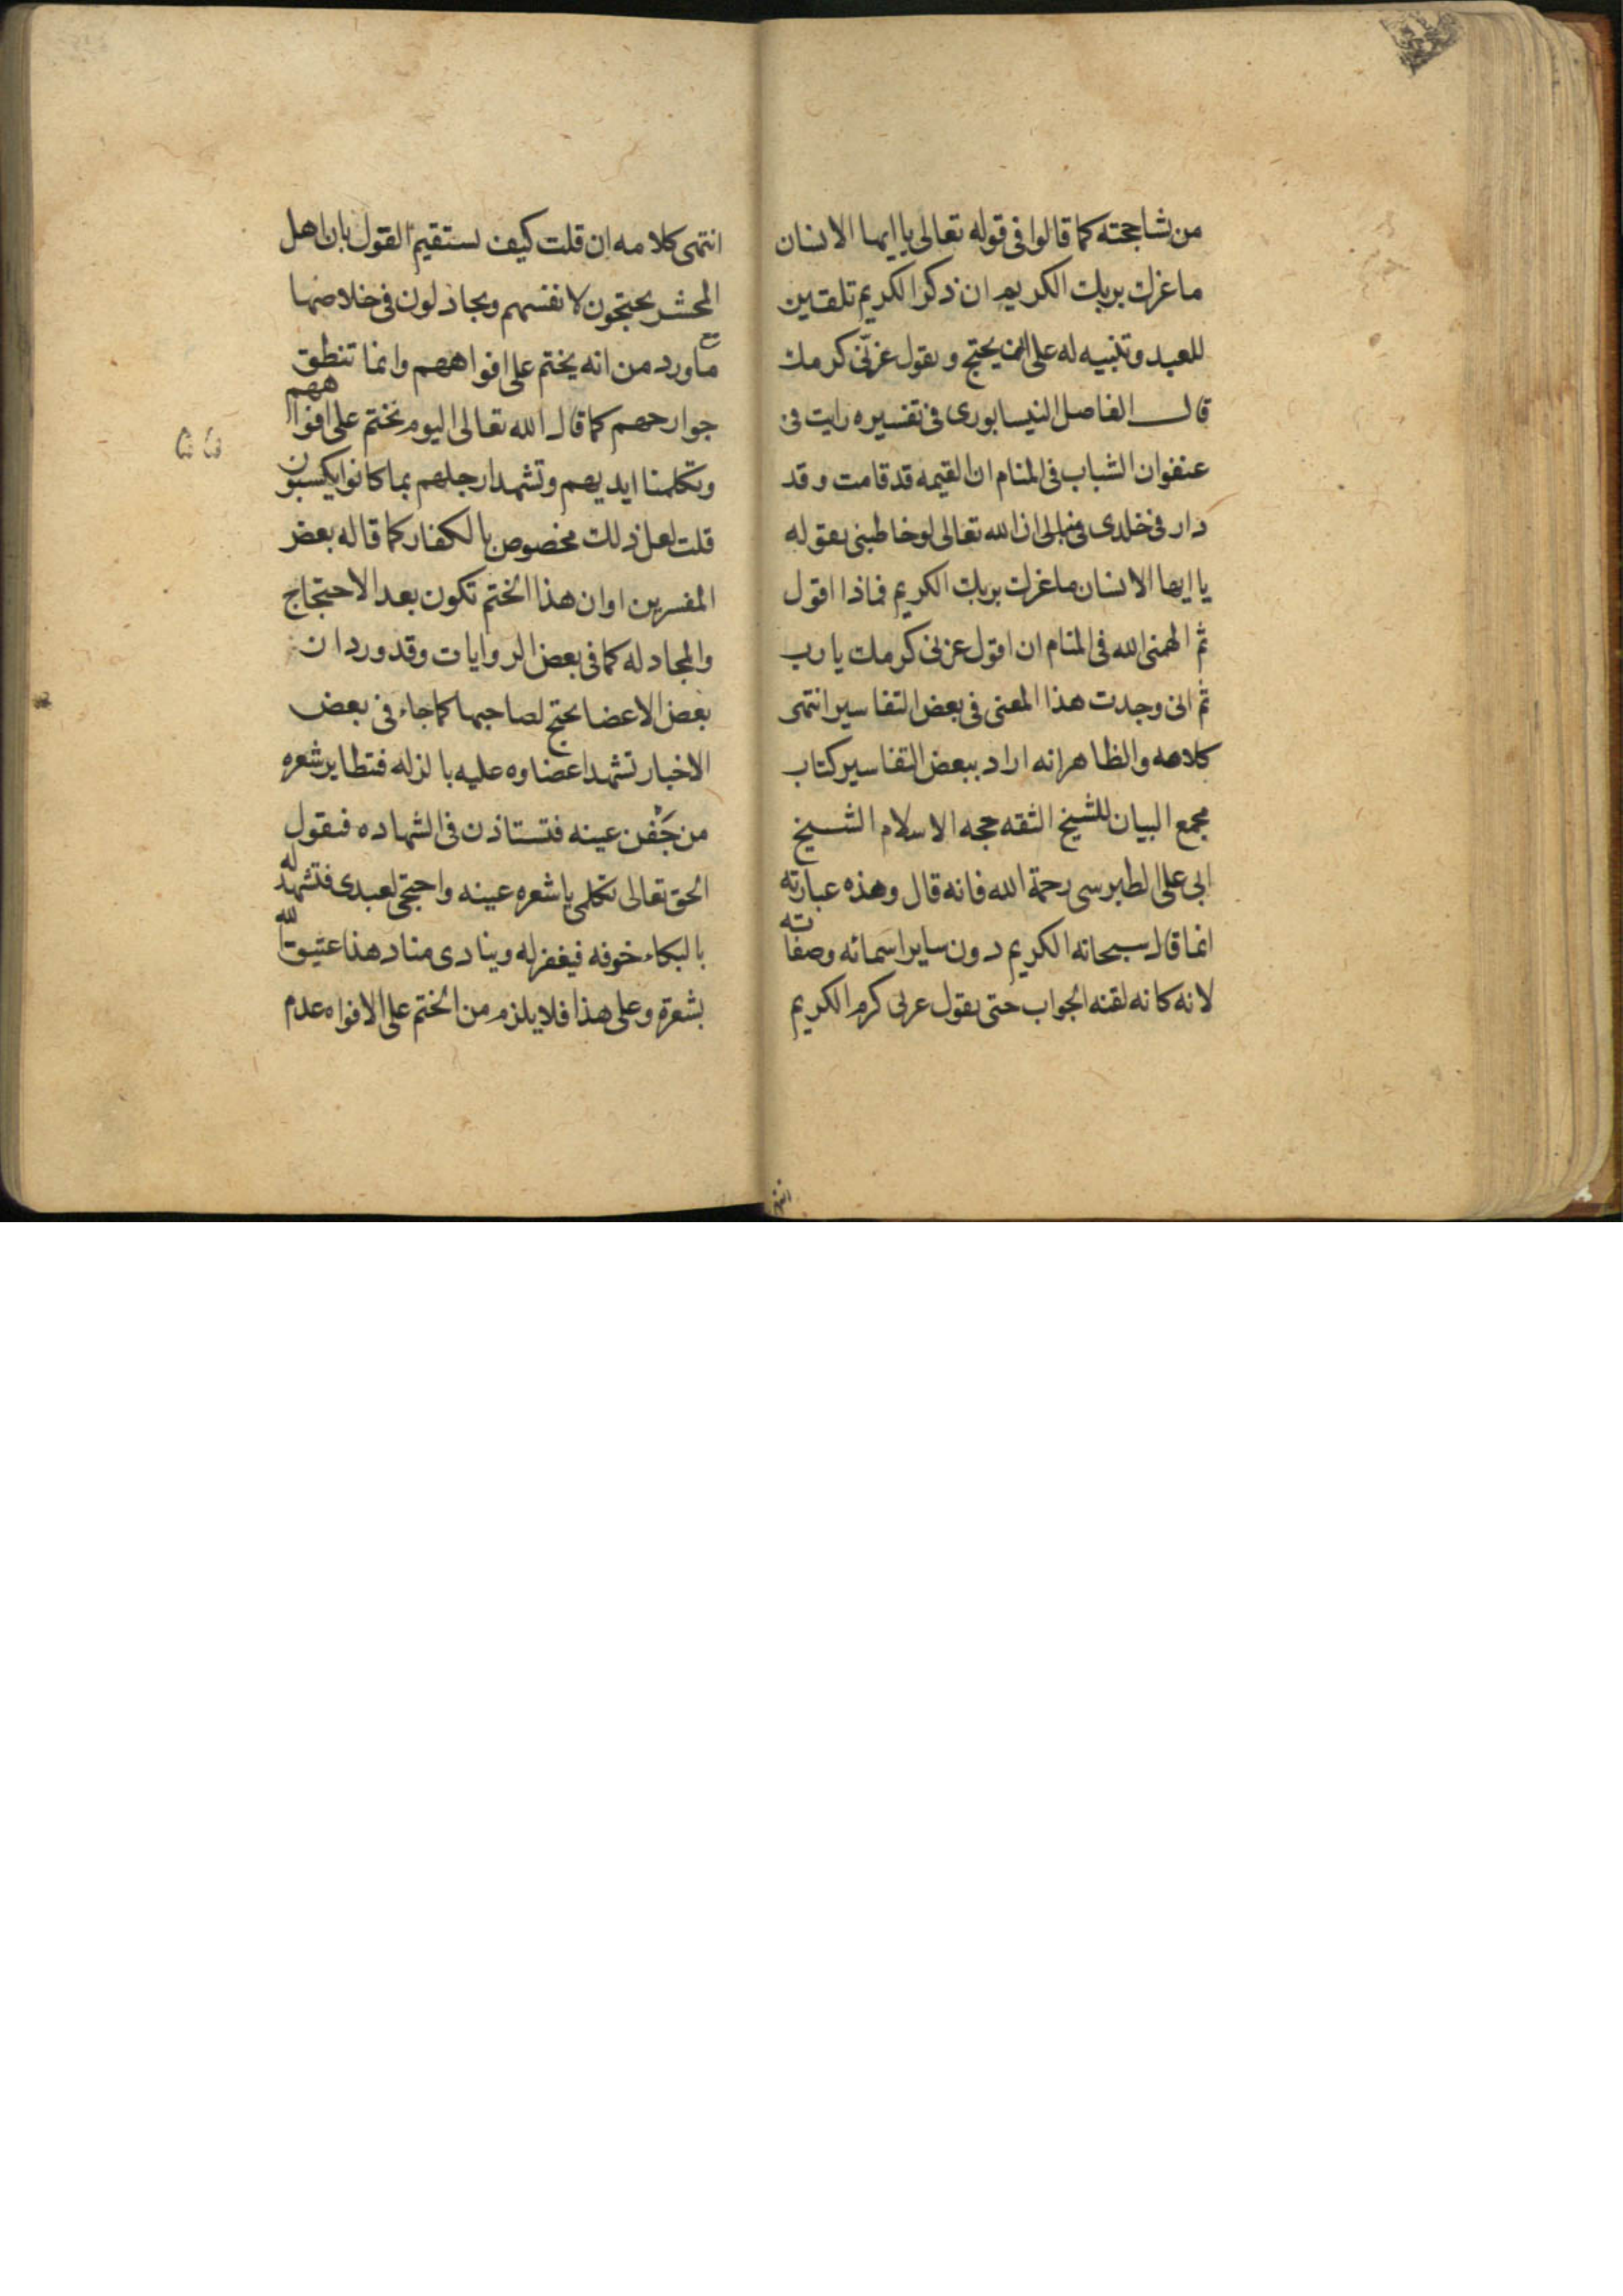 من شاحجته كما قالوا فى قوله تعالى يا ايها الانسان
ما غرك بربك الكريم ان ذكر الكريم تلقين
للعبد وتنبيه له على ان يحتج ويقول غرنى كرمك
قال الفاضل النيسابورى فى تفسيره رايت فى
عنفوان الشباب فى المنام ان القيمه قد قامت وقد
دار فى خلدى فى بالى ان الله تعالى لو خاطبنى بقوله
يا ايها الانسان ما غرك بربك الكريم فماذا اقول
ثم الهمنى الله فى المنام ان اقول غرنى كرمك يا رب
ثم انى وجدت هذا المعنى فى بعض التفاسير انتهى
كلامه والظاهر انه اراد ببعض التفاسير كتاب
مجمع البيان للشيخ الثقه حجه الاسلام الشيخ
ابى على الطبرسى رحمة الله فانه قال وهذه عبارته
انما قال سبحانه الكريم دون ساير اسمائه وصفاته
لانه كانه لقنه الجواب حتى يقول غرنى كرم الكريم
انتهى كلامه ان قلت كيف يستقيم القول بان اهل
المحشر يحتجون لانفسهم ويجادلون فى خلاصها
مع ما ورد من انه يختم على افواههم وانما تنطق
جوارحهم كما قال الله تعالى اليوم نختم على افواههم
وتكلمنا ايديهم وتشهد ارجلهم بما كانوا يكسبون
قلت لعل ذلك مخصوص بالكفار كما قاله بعض
المفسرين او ان هذا الختم تكون بعد الاحتجاج
والمجادله كما فى بعض الروايات وقد ورد ان
بعض الاعضا يحتج لصاحبها كما جاء فى بعض
الاخبار تشهد اعضاوه عليه بالزله فتطاير شعره
من جَفْن عينه فتستاذن فى الشهاده فيقول
الحق تعالى تكلمى يا شعره عينه واحتجى لعبدى فتشهد له
بالبكاء خوفه فيغفر له وينادى مناد هذا عتيق الله
بشعرة وعلى هذا فلا يلزم من الختم على الافواه عدم